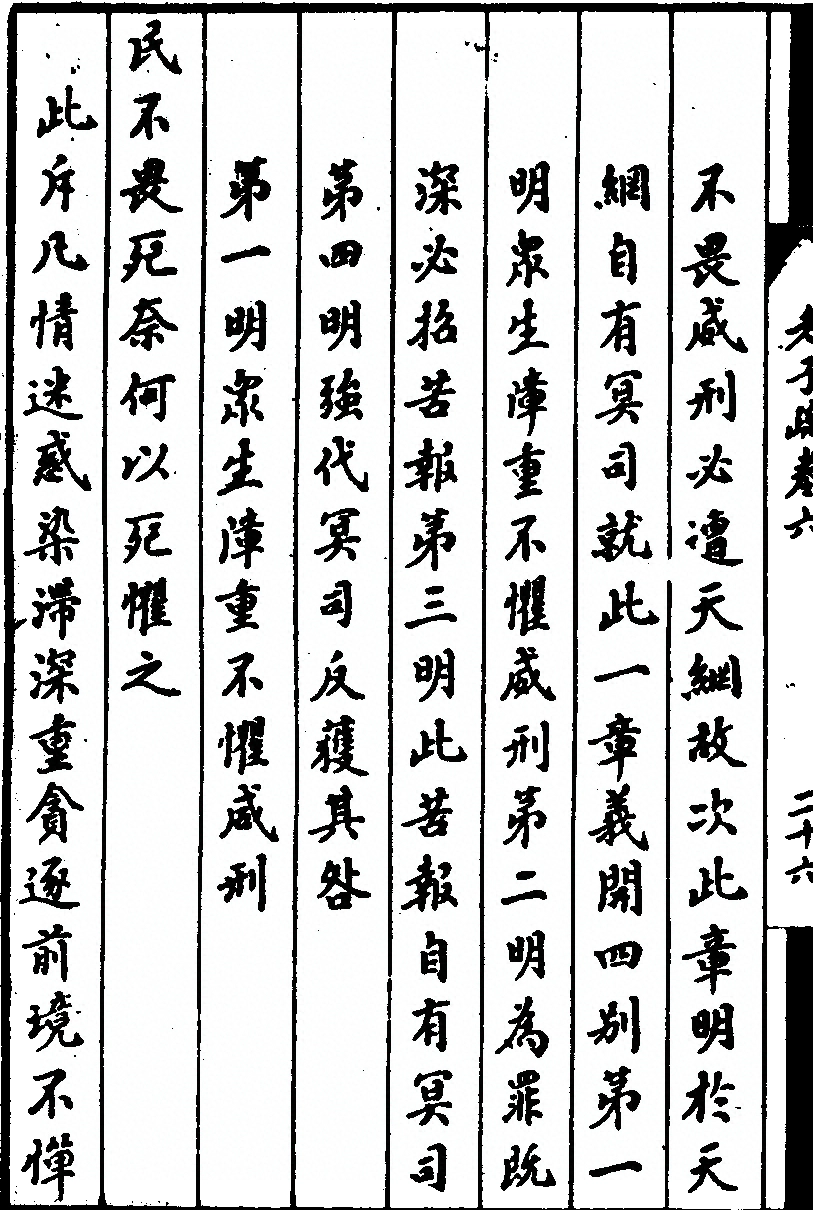 老子疏卷六
二十六
不畏威刑必遭天網故次此章明於天
網自有冥司就此一章義開四別第一
明眾生障重不懼威刑第二明為罪既
深必招苦報第三明此苦報自有冥司
第四明強代冥司反獲其咎
第一明眾生障重不懼威刑
民不畏死奈何以死懼之
此斥凡情迷惑染滯深重貪逐前境不憚